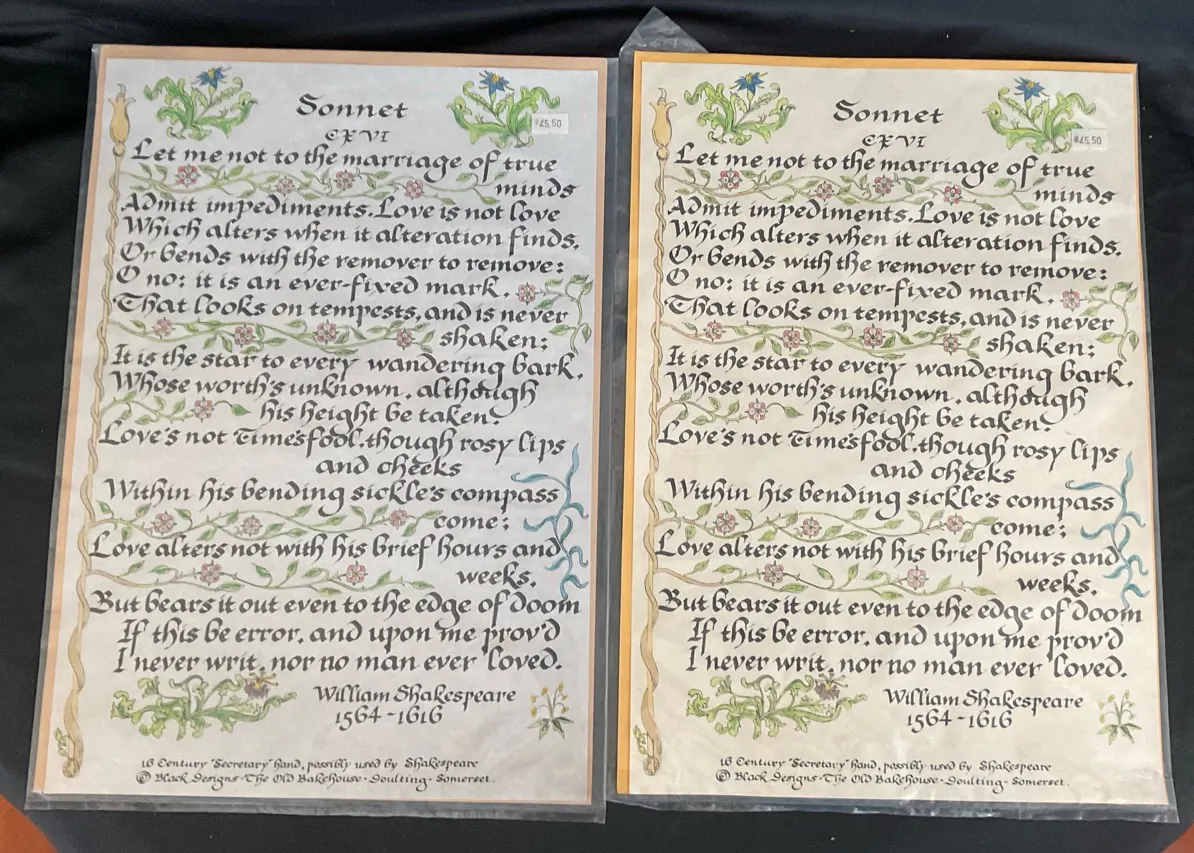 Sonnet
CXVI
£5.50
Let me not to the marriage of true
minds
Admit impediments. Love is not love
Which alters when it alteration finds,
Or bends with the remover to remove:
O no: it is an ever-fixed mark,
That looks on tempests, and is never
shaken;
It is the star to every wandering bark,
Whose worth's unknown, although
his height be taken.
Love's not Time's fool, though rosy lips
and cheeks
Within his bending sickle's compass
come;
Love alters not with his brief hours and
weeks,
But bears it out even to the edge of doom
If this be error, and upon me prov'd
I never writ, nor no man ever loved.
William Shakespeare
1564-1616
16 Century "Secretary" hand, possibly used by Shakespeare
© Black Designs · The Old Bakehouse · Doulting · Somerset.
Sonnet
CXVI
£5.50
Let me not to the marriage of true
minds
Admit impediments. Love is not love
Which alters when it alteration finds,
Or bends with the remover to remove:
O no: it is an ever-fixed mark,
That looks on tempests, and is never
shaken;
It is the star to every wandering bark,
Whose worth's unknown, although
his height be taken.
Love's not Time's fool, though rosy lips
and cheeks
Within his bending sickle's compass
come;
Love alters not with his brief hours and
weeks,
But bears it out even to the edge of doom
If this be error, and upon me prov'd
I never writ, nor no man ever loved.
William Shakespeare
1564-1616
16 Century "Secretary" hand, possibly used by Shakespeare
© Black Designs · The Old Bakehouse · Doulting · Somerset.